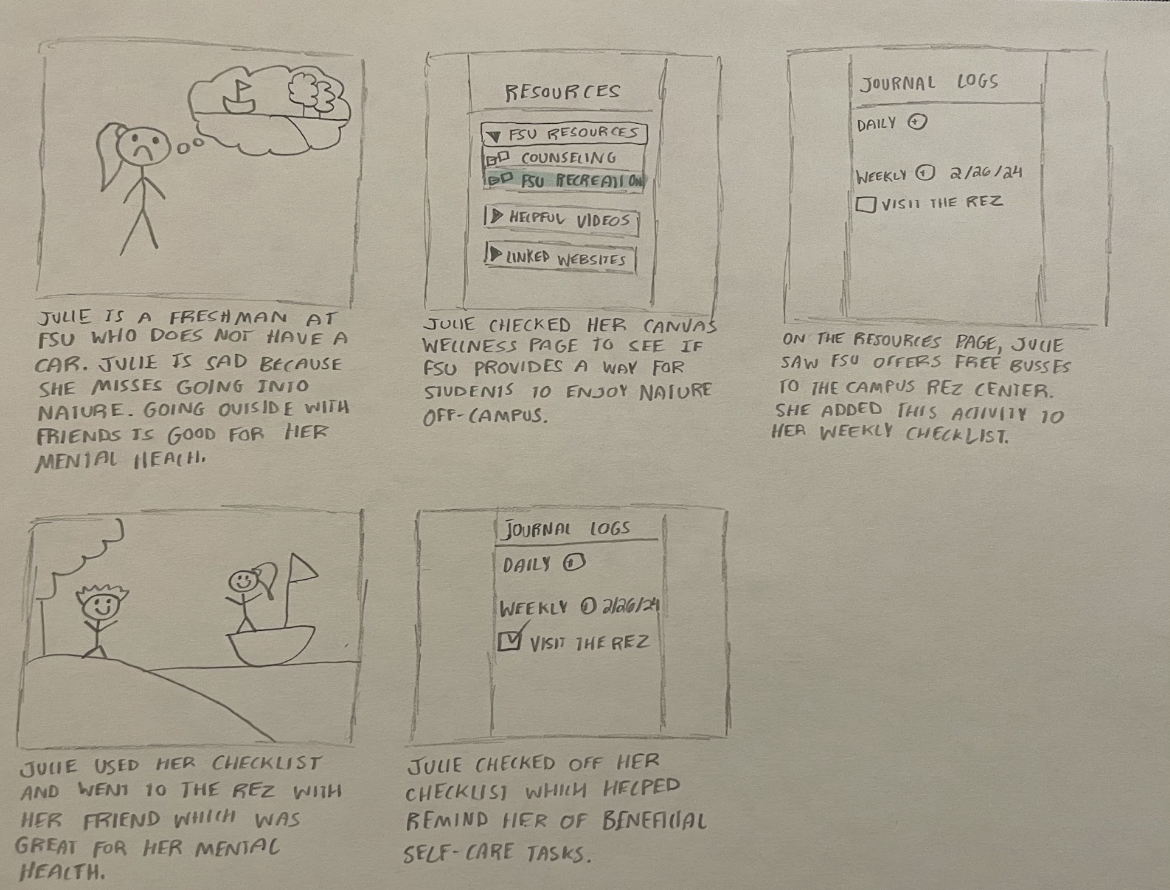 JULIE IS A FRESHMAN AT
FSU WHO DOES NOT HAVE A
CAR. JULIE IS SAD BECAUSE
SHE MISSES GOING INTO
NATURE. GOING OUISIDE WITH
FRIENDS IS GOOD FOR HER
MENTAL HEALH.
RESOURCES
FSU RESOURCES
COUNSELING
FSU RECREATION
HELPFUL VIDEOS
LINKED WEBSITES
JULIE CHECKED HER CANVAS
WELLNESS PAGE TO SEE IF
FSU PROVIDES A WAY FOR
STUDENTS TO ENJOY NATURE
OFF-CAMPUS.
JOURNAL LOGS
DAILY +
WEEKLY + 2/26/24
VISIT THE REZ
ON THE RESOURCES PAGE, JULIE
SAW FSU OFFERS FREE BUSSES
TO THE CAMPUS REZ CENTER.
SHE ADDED THIS ACTIVITY TO
HER WEEKLY CHECKLIST.
JULIE USED HER CHECKLIST
AND WENT TO THE REZ WITH
HER FRIEND WHICH WAS
GREAT FOR HER MENTAL
HEALTH.
JOURNAL LOGS
DAILY +
WEEKLY + 2/26/24
VISIT THE REZ
JULIE CHECKED OFF HER
CHECKLIST WHICH HELPED
REMIND HER OF BENEFICIAL
SELF-CARE TASKS.